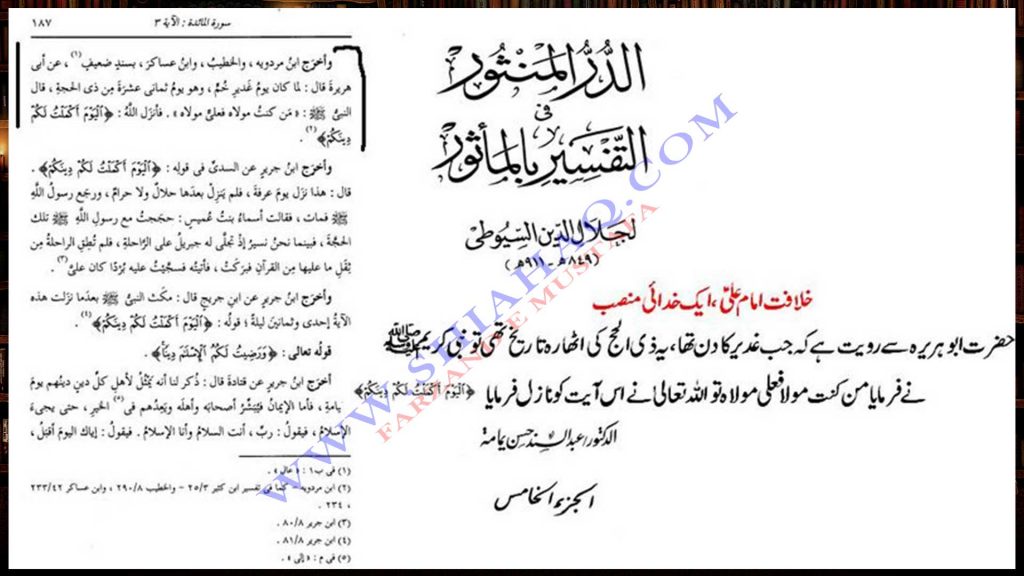 سورة المائدة : الآية ٣
١٨٧
وأخرَج ابنُ مردويه ، والخطيبُ ، وابنُ عساكرَ ، بسندٍ ضعيفٍ(١) ، عن أبى
هريرةَ قال : لما كان يومُ غَديرِ خُمٍّ ، وهو يومُ ثمانى عشرةَ مِن ذى الحجةِ ، قال
النبىُّ ﷺ : «مَن كنتُ مولاه فعلىٌّ مولاه» . فأنزل اللَّهُ : ﴿اَلْيَوْمَ أَكْمَلْتُ لَكُمْ
دِينَكُمْ﴾(٢) .
وأخرَج ابنُ جريرٍ عن السدىِّ فى قولِه : ﴿اَلْيَوْمَ أَكْمَلْتُ لَكُمْ دِينَكُمْ﴾ .
قال : هذا نزَل يومَ عرفةَ ، فلم يَنزِلْ بعدَها حلالٌ ولا حرامٌ ، ورجَع رسولُ اللَّهِ
ﷺ فمات ، فقالت أسماءُ بنتُ عُميسٍ : حجَجتُ مع رسولِ اللَّهِ ﷺ تلك
الحجَّةَ ، فبينما نحنُ نسيرُ إذ تجلَّى له جبريلُ على الرَّاحلةِ ، فلم تُطِقِ الراحلةُ مِن
ثِقَلِ ما عليها مِن القرآنِ فبرَكتْ ، فأتيتُه فسجَّيْتُ عليه بُرْدًا كان علىَّ(٣) .
وأخرَج ابنُ جريرٍ عن ابنِ جريجٍ قال : مكَث النبىُّ ﷺ بعدَما نزَلت هذه
الآيةُ إحدى وثمانينَ ليلةً ؛ قولُه : ﴿اَلْيَوْمَ أَكْمَلْتُ لَكُمْ دِينَكُمْ﴾(٤) .
قولُه تعالى : ﴿وَرَضِيتُ لَكُمُ اَلْإِسْلَمَ دِينًا﴾ .
أخرَج ابنُ جريرٍ عن قتادةَ قال : ذُكر لنا أنه يَمْثُلُ لأهلِ كلِّ دينٍ دينُهم يومَ
يامةِ ، فأما الإيمانُ فيُبَشِّرُ أصحابَه وأهلَه ويَعِدُهم فى(٥) الخيرِ ، حتى يجىءَ
الإسلامُ ، فيقولُ : ربِّ ، أنت السلامُ وأنا الإسلامُ . فيقولُ : إياك اليومَ أقبَلُ ،
(١) فى ب١ : «عال» .
(٢) ابن مردويه - كما فى تفسير ابن كثير ٢٥/٣ - والخطيب ٢٩٠/٨ ، وابن عساكر ٢٣٣/٤٢
، ٢٣٤ .
(٣) ابن جرير ٨٠/٨ .
(٤) ابن جرير ٨١/٨ .
(٥) فى م : «إلى» .
الدُّرُّ المَنْثُورُ
فى
التَّفْسِيرِ بِالمَأْثُورِ
لجلال الدين السيوطى
(٨٤٩هـ - ٩١١هـ)
خلافت امام علیؑ، ایک خدائی منصب
حضرت ابوہریرہ سے رویت ہے کہ جب غدیر کا دن تھا، یہ ذی الحج کی اٹھارہ تاریخ تھی تو نبی کریم ﷺ
نے فرمایا من کنت مولا فعلی مولاہ تو اللہ تعالیٰ نے اس آیت کو نازل فرمایا ﴿اَلْيَوْمَ أَكْمَلْتُ لَكُمْ دِينَكُمْ﴾
الدكتور عبد السند حسن يمامة
الجزء الخامس
WWW.SHIAHAQ.COM
FARZAND E MUSTAFA